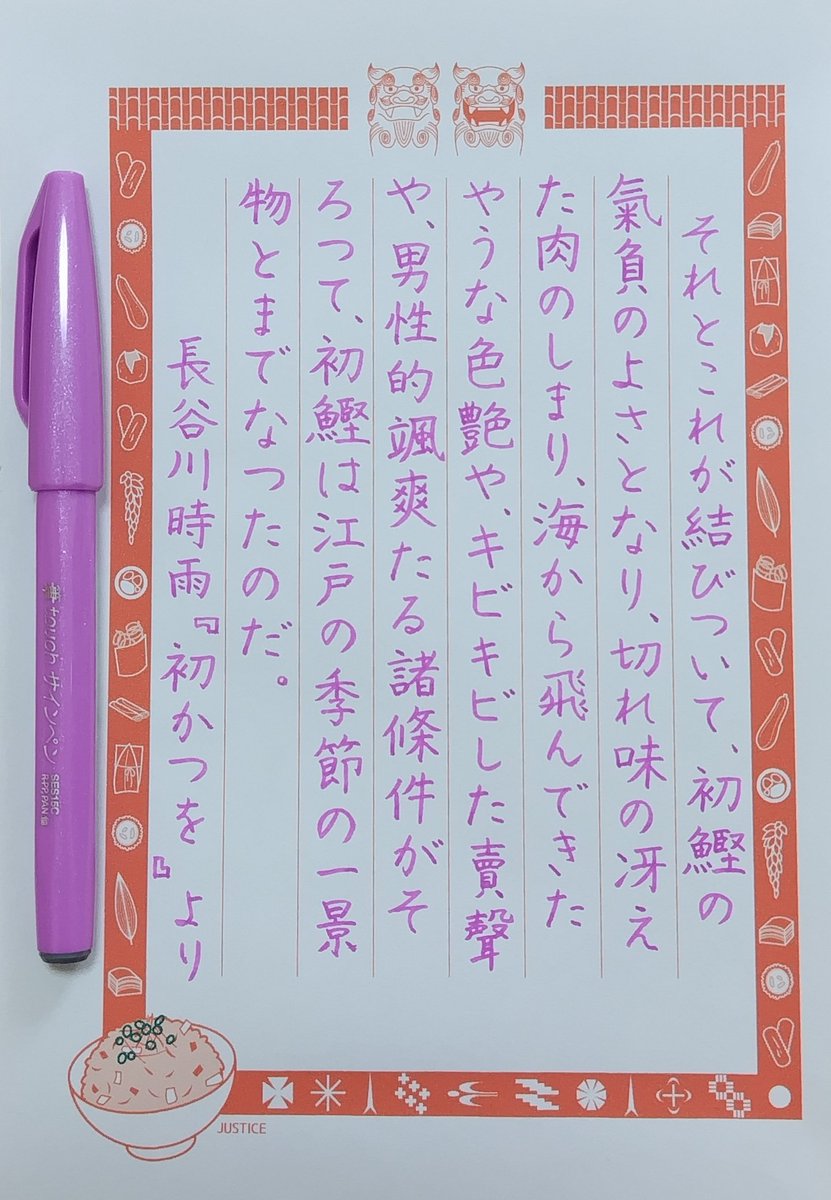 それとこれが結びついて、初鰹の
氣負のよさとなり、切れ味の冴え
た肉のしまり、海から飛んできた
やうな色艶や、キビキビした賣聲
や、男性的颯爽たる諸條件がそ
ろつて、初鰹は江戸の季節の一景
物とまでなつたのだ。
長谷川時雨『初かつを』より
touch サインペン
SES15C
JUSTICE